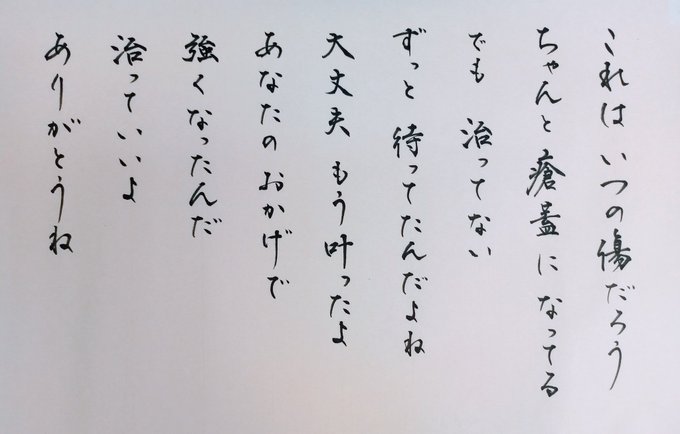 これは いつの傷だろう
ちゃんと 瘡蓋に なってる
でも 治ってない
ずっと 待ってたんだよね
大丈夫 もう叶ったよ
あなたの おかげで
強くなったんだ
治っていいよ
ありがとうね